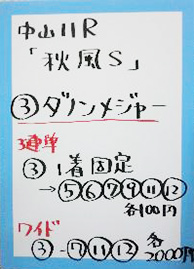 中山11R
「秋風S」
③ダノンメジャー
3連単
③1着固定
→⑤⑥⑦⑨⑪⑫
各100円
ワイド
③-⑦⑪⑫ 各2000円